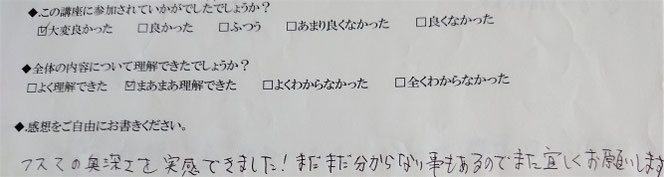 ◆.この講座に参加されていかがでしたでしょうか?
☑大変良かった □良かった □ふつう □あまり良くなかった □良くなかった
◆.全体の内容について理解できたでしょうか?
□よく理解できた ☑まあまあ理解できた □よくわからなかった □全くわからなかった
◆.感想をご自由にお書きください。
フスマの奥深さを実感できました!まだまだ分からない事もあるのでまた宜しくお願いします